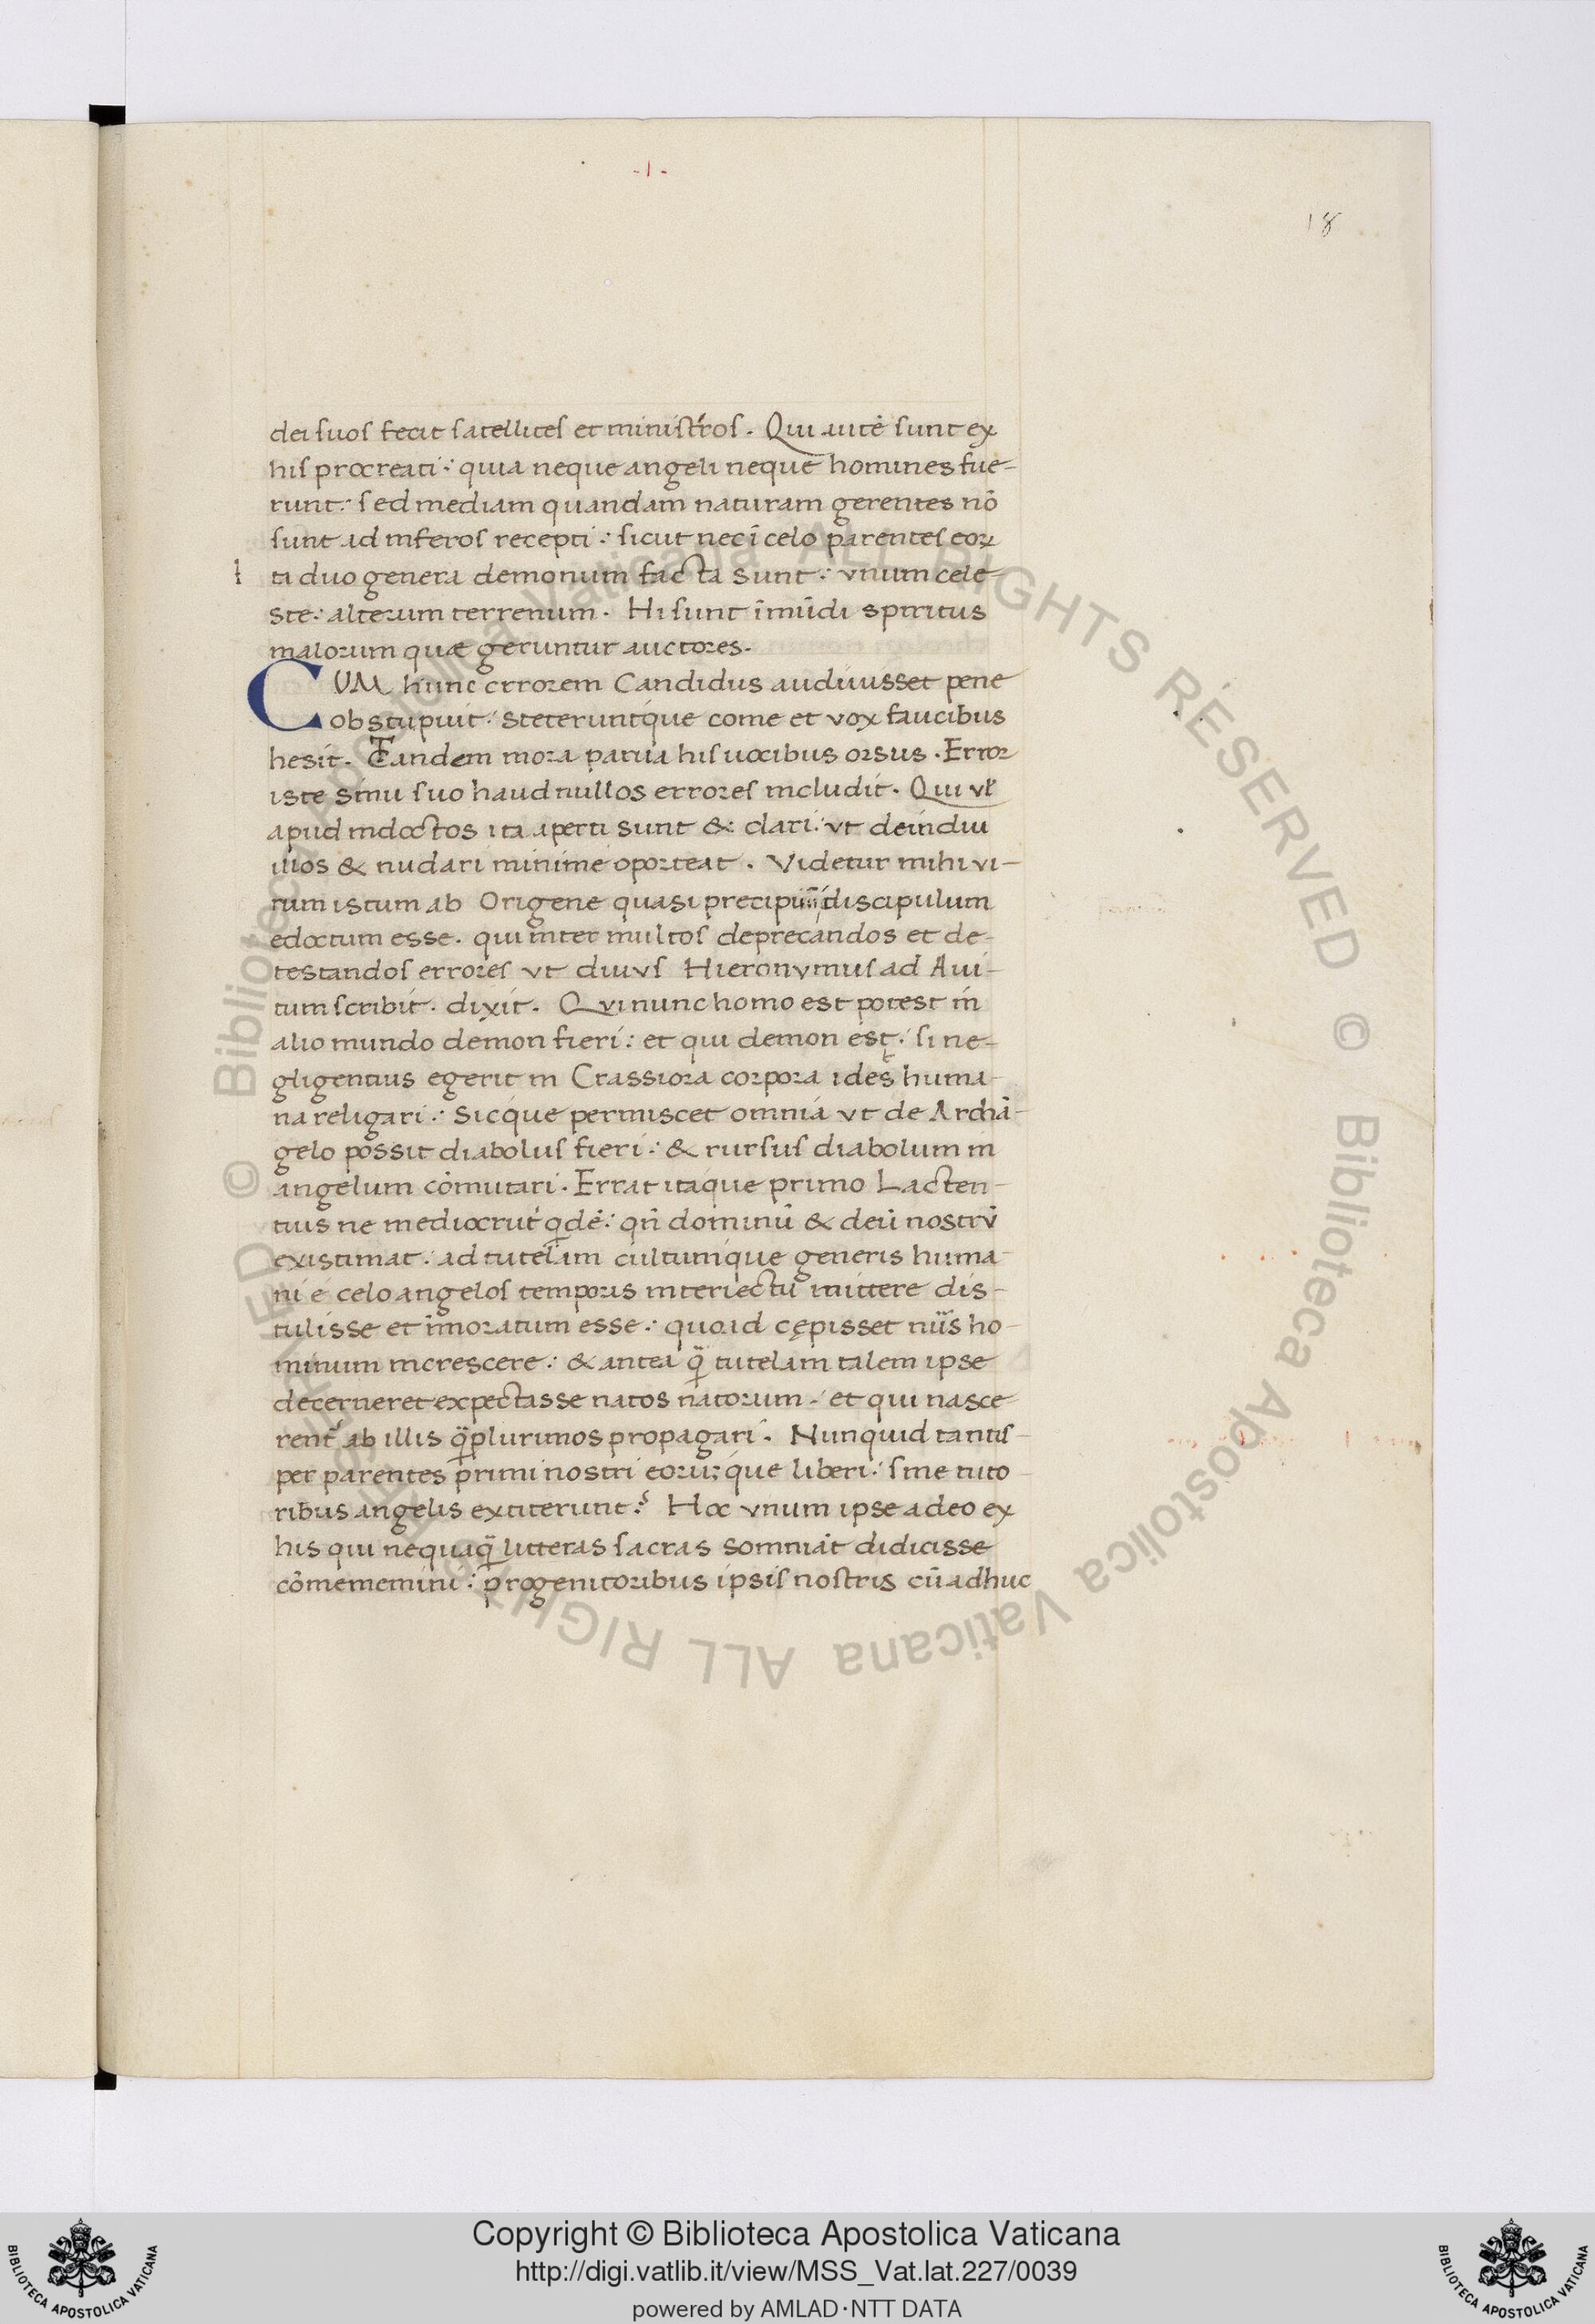 -1-
18
dei suos fecit satellites et ministros. Qui autē sunt ex
his procreati: quia neque angeli neque homines fue-
runt: sed mediam quandam naturam gerentes nō
sunt ad inferos recepti: sicut nec ī celo parentes eoꝝ
ti duo genera demonum facta sunt: vnum cele-
ste: alterum terrenum. Hi sunt īmūdi spiritus
malorum quæ geruntur auctores.
CVM hunc errorem Candidus audiuisset pene
obstupuit: steteruntque come et vox faucibus
hesit. Tandem mora parua his uocibus orsus. Error
iste sinu suo haud nullos errores includit. Qui vł
apud indoctos ita aperti sunt &: clari: vt
illos & nudari minime oporteat. Videtur mihi vi-
rum istum ab Origene quasi precipuū discipulum
edoctum esse. qui inter multos deprecandos et de-
testandos errores vt diuus Hieronymus ad Aui-
tum scribit. dixit. Qui nunc homo est potest in
alio mundo demon fieri: et qui demon est: si ne-
gligentius egerit in Crassiora corpora idest huma-
na religari: Sicque permiscet omnia vt de Archā-
gelo possit diabolus fieri: & rursus diabolum in
angelum cōmutari. Errat itaque primo Lacten-
tius ne mediocrit᷑ qdē: qñ dominū & deū nostrū
existimat: ad tutelam cultumque generis huma-
ni e celo angelos temporis interiectu mittere dis-
tulisse et īmoratum esse: quoad cępisset nūs ho-
minum increscere: & antea q̄ tutelam talem ipse
decerneret expectasse natos natorum: et qui nasce-
rent᷑ ab illis q̄plurimos propagari. Nunquid tantis-
per parentes primi nostri eorūque liberi: sine tuto-
ribus angelis extiterunt? Hoc vnum ipse adeo ex
his qui nequaq̄ litteras sacras somniāt didicisse
cōmemini: progenitoribus ipsis nostris cū adhuc
© Biblioteca Apostolica Vaticana ALL RIGHTS RESERVED © Biblioteca Apostolica Vaticana ALL RIGHTS RESERVED
Copyright © Biblioteca Apostolica Vaticana
http://digi.vatlib.it/view/MSS_Vat.lat.227/0039
powered by AMLAD·NTT DATA
BIBLIOTECA APOSTOLICA VATICANA
BIBLIOTECA APOSTOLICA VATICANA